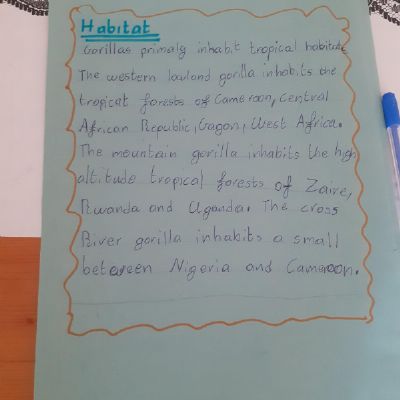 Habitat
Gorillas primaly inhabit tropical habitats
The western lowland gorilla inhabits the
tropical forests of Cameroon, Central
African Republic, Gagon, West Africa.
The mountain gorilla inhabits the high
altitude tropical forests of Zaire,
Rwanda and Uganda. The cross
River gorilla inhabits a small
between Nigeria and Cameroon.